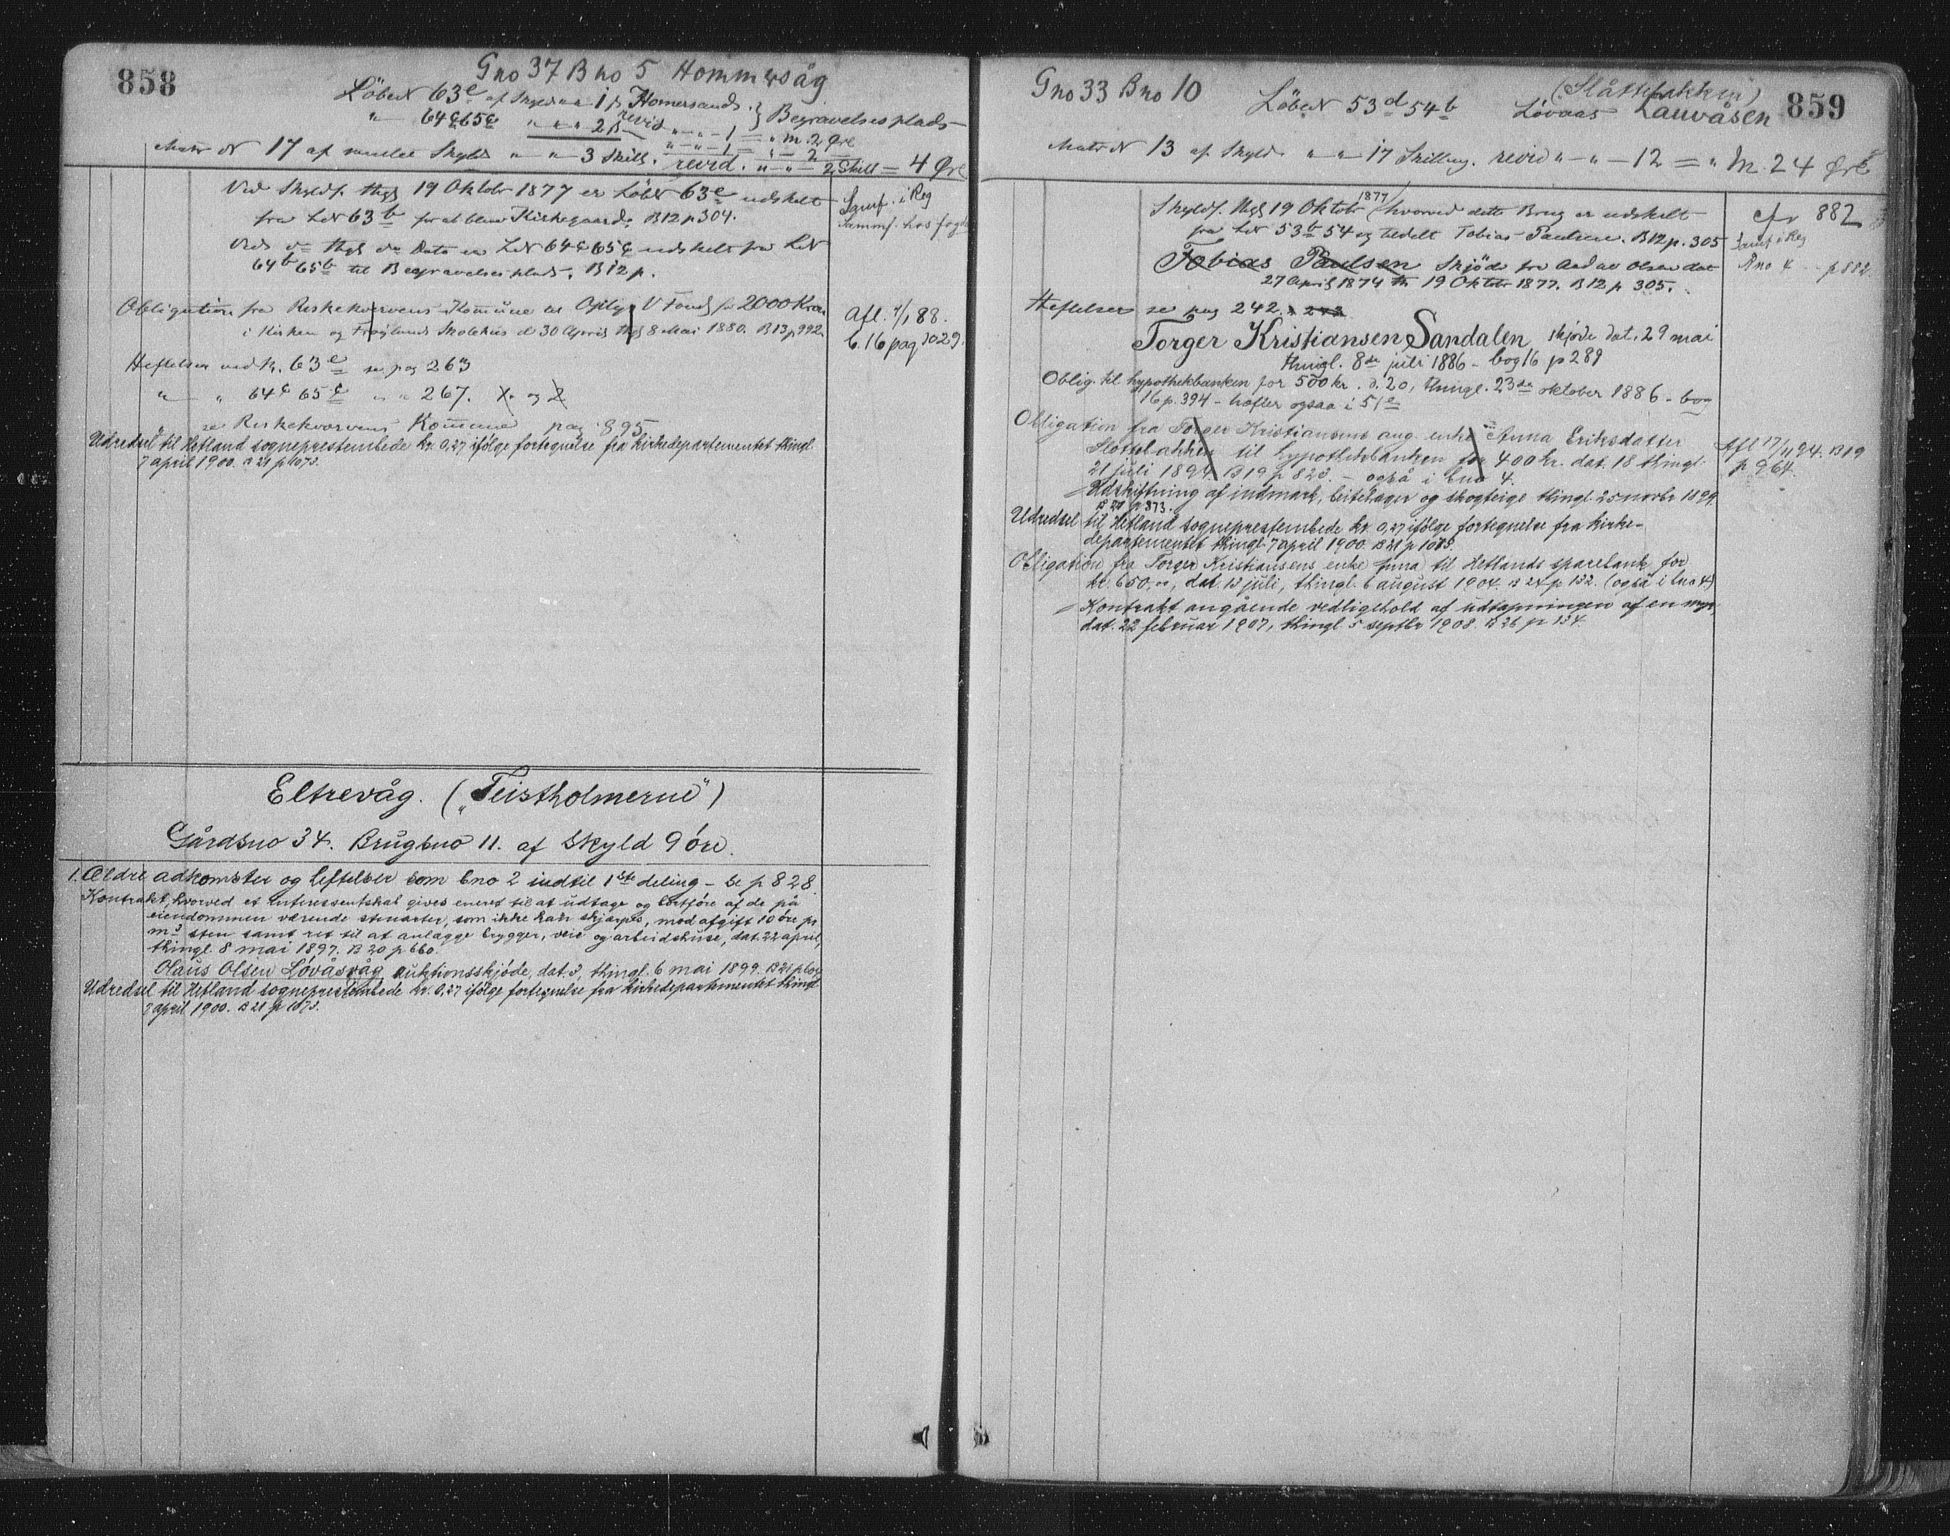 858
Gno 37 Bno 5 Hommersåg
Løbe N 63e af Skyld 1 ß Homersands } Begravelsesplads
" 64c 65c " " " 2 ß revid " - " - 1 = " m. 2 Øre
Matr N 17 af samlet Skyld " " 3 Skill. revid. " - " - 2 Skill = 4 Øre
Ved Skyldf. thgl 19 Oktobr 1877 er Løb N 63e udskilt
fra L N 63b for at blive Kirkegaard. B12 p. 304.
Ved do thgl do Dato er L N 64c 65c udskilt fra L N
64b 65b til Begravelsesplads. B12 p.
Samf. i Reg
Sammf. hos fogd
Obligation fra Riskekvervens Kommune til Oplys V Fond for 2000 Kroner
i Kirken og Frøylunds Skolehus d 30 April thgl 8 Mai 1880. B13 p 992.
Afl. 4/1 88.
b. 16 pag 1029.
Heftelser ved N. 63e se pag 263
" " 64c 65c " " 267. 1. og 2
se Riskekvervens Kommune pag 895
Udredsel til Hetland sogneprestembede kr. 0,27 ifølge fortegnelse fra kirkedepartementet thingl
7 april 1900. B 21 p 1073.
Eltrevåg. („Teistholmerne")
Gårdsno 34. Brugsno 11. af Skyld 9 öre.
1. Ældre adkomster og heftelser som bno 2 indtil 1ste deling – se p 828.
Kontrakt, hvorved et interessentskab gives eneret til at udtage og bortføre af de på
eiendommen værende stenarter, som ikke kan skjærpes, mod afgift 10 øre pr
m3 sten samt ret til at anlægge brygger, veie og arbeidshuse, dat. 22 april,
thingl. 8 mai 1897. B 20 p 660.
Olaus Olsen Løvåsvåg auktionsskjøde, dat. 3, thingl. 6 mai 1899. B 21 p 609
Udredsel til Hetland sogneprestembede kr. 0,27 ifølge fortegnelse fra kirkedepartementet thingl
7 april 1900. B 21 p 1073.
859
Gno 33 Bno 10 Løbe N 53d 54b Løvaas (Slåttebakken) Lauvåsen
Matr N 13 af Skyld " " 17 Skilling. revid " - " - 12 = " M. 24 Øre
Skyldf. thgl 19 Oktobr 1877 hvorved dette Brug er udskilt
fra L N 53b 54 og tildelt Tobias Paulsen. B12 p. 305
cfr 882
Samf i Reg
Bno 4 - p 882.
Tobias Paulsen Skjøde fra Aadne Olsen dat
27 April 1874 th 19 Oktobr 1877. B12 p 305.
Heftelser se pag 242.
Torger Kristiansen Sandalen skjøde dat. 29 mai
thingl. 8de juli 1886 - bog 16 p 289
Oblig. til hypothekbanken for 500 kr. d. 20, thingl. 23de oktober 1886 - bog
16 p. 394 - hefter ogsaa i 51e
Obligation fra Torger Kristiansens ang. enke Anna Eriksdatter
Slottebakken til hypothekbanken for 400 kr. dat. 18 thingl.
21 juli 1894. B 19 p 823. - også i bno 4.
Afl 17/11 94. B 19
p 964.
Udskiftning af indmark, beitehager og skogteige thingl. 25 novbr 1899.
B 21 p 373.
Udredsel til Hetland sogneprestembede kr. 0,27 ifølge fortegnelse fra kirke-
departementet thingl 7 april 1900. B 21 p 1073.
Obligation fra Torger Kristiansens enke Anna til Hetlands sparebank for
kr. 650,00, dat. 13 juli, thingl. 6 august 1904. B 24 p 132. (også i bno 4)
Kontrakt angående vedligehold af udtapningen af en myr,
dat. 22 februar 1907, thingl 5 septbr 1908. B 26 p 134.